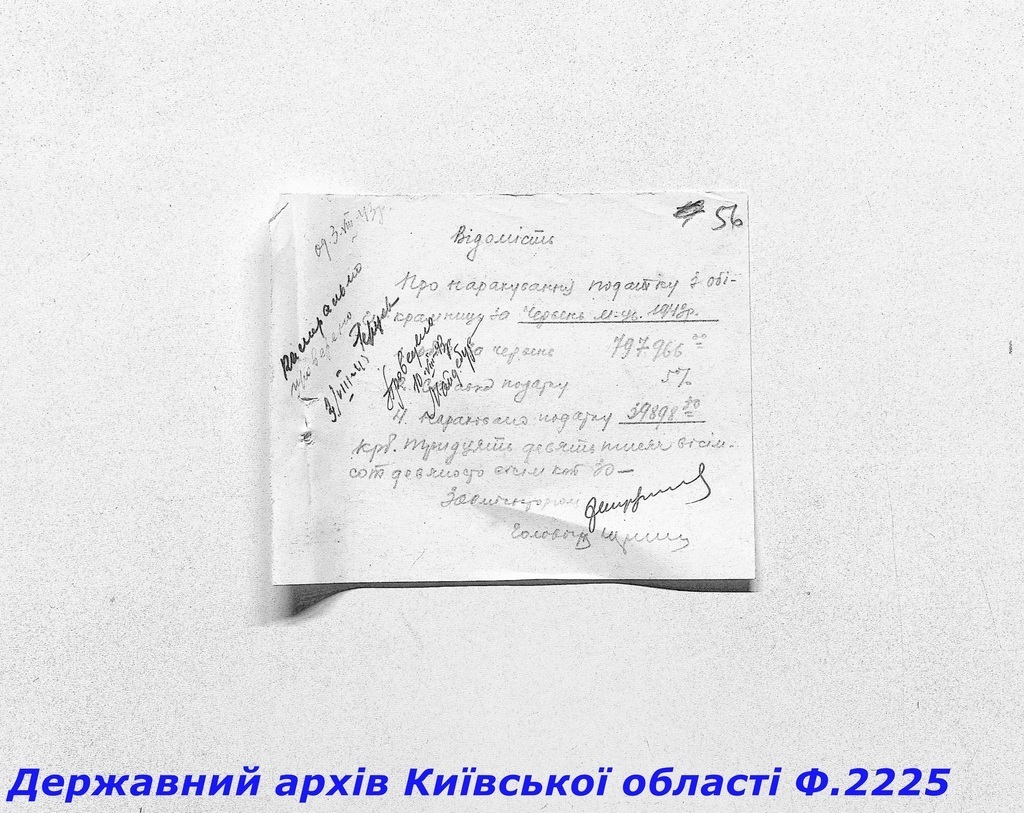 56
од. 3.VIII-43р.
Відомість
Про нарахування податку з обі-
крамниці за Червень м-ць. 1943р.
за червень 797.966 00
податку 5%
4. Нараховано податку 39898 30
крб. Тридцять девять тисяч вісім-
сот девяносто вісім коп 30—
3/VIII-43
Провірено
10.VIII-43р.
Головбух
Державний архів Київської області Ф.2225